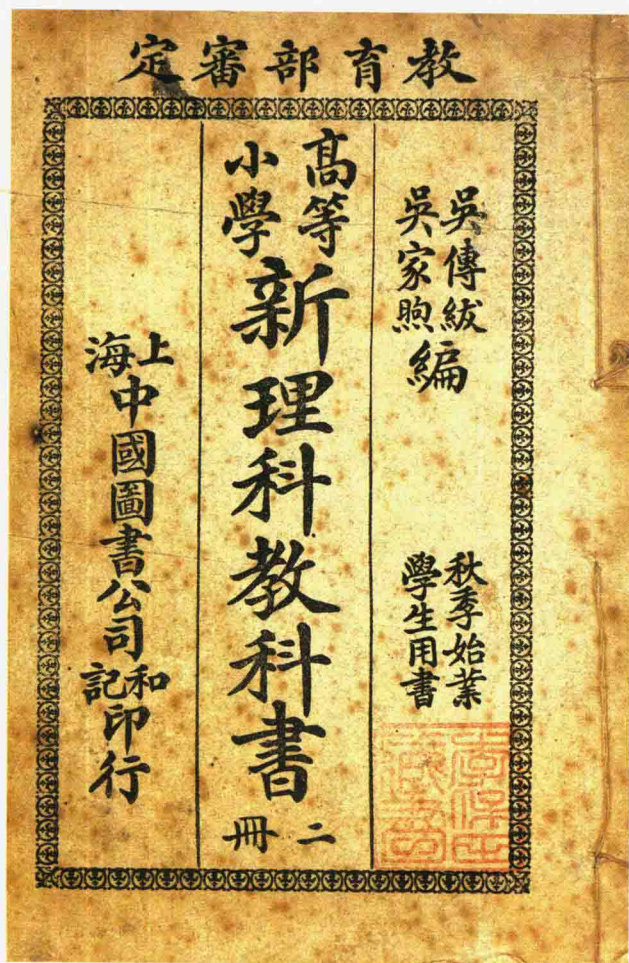 教育部審定
吳傳紱
吳家煦編
秋季始業
學生用書
高等
小學
新理科教科書
二冊
上海
中國圖書公司
和記
印行